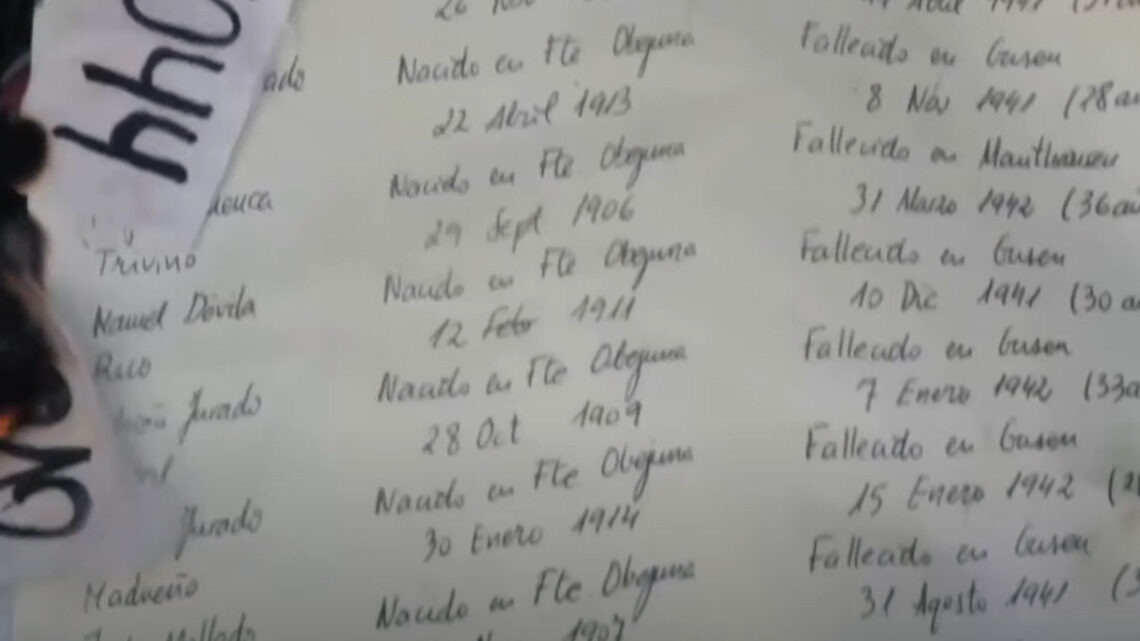 hho
44
26 Nov
Abril 1941
ado
Nacido en Fte Obejuna
Fallecido en Gusen
22 Abril 1913
8 Nov 1941 (28 a
uenca
Nacido en Fte Obejuna
Fallecido en Mauthausen
29 Sept 1906
31 Marzo 1942 (36 añ
Triviño
Manuel Dávila
Nacido en Fte Obejuna
Fallecido en Gusen
12 Febr 1911
10 Dic 1941 (30 a
Rico
Jurado
Nacido en Fte Obejuna
Fallecido en Gusen
28 Oct 1909
7 Enero 1942 (33 a
Jurado
Nacido en Fte Obejuna
Fallecido en Gusen
30 Enero 1914
15 Enero 1942 (2
Madueño
Nacido en Fte Obejuna
Fallecido en Gusen
1907
31 Agosto 1941 (3
Mellado